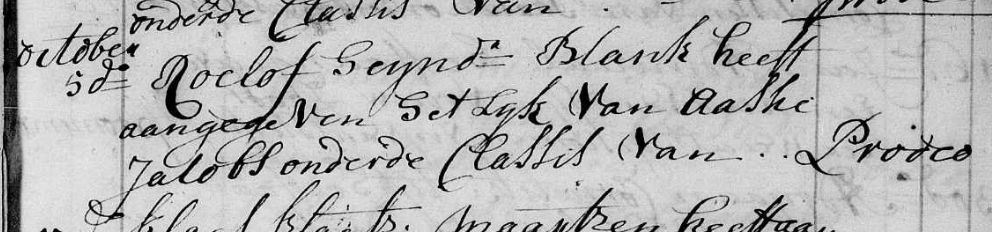 onderde Classis Van . -
october
5d° Roelof Seynd.ª Blank heeft
aangegeven Het Lyk Van Aaslie
Jacobs onderde Classis Van .. Prodeo
klaas klaasz. Maartzen heeft aan